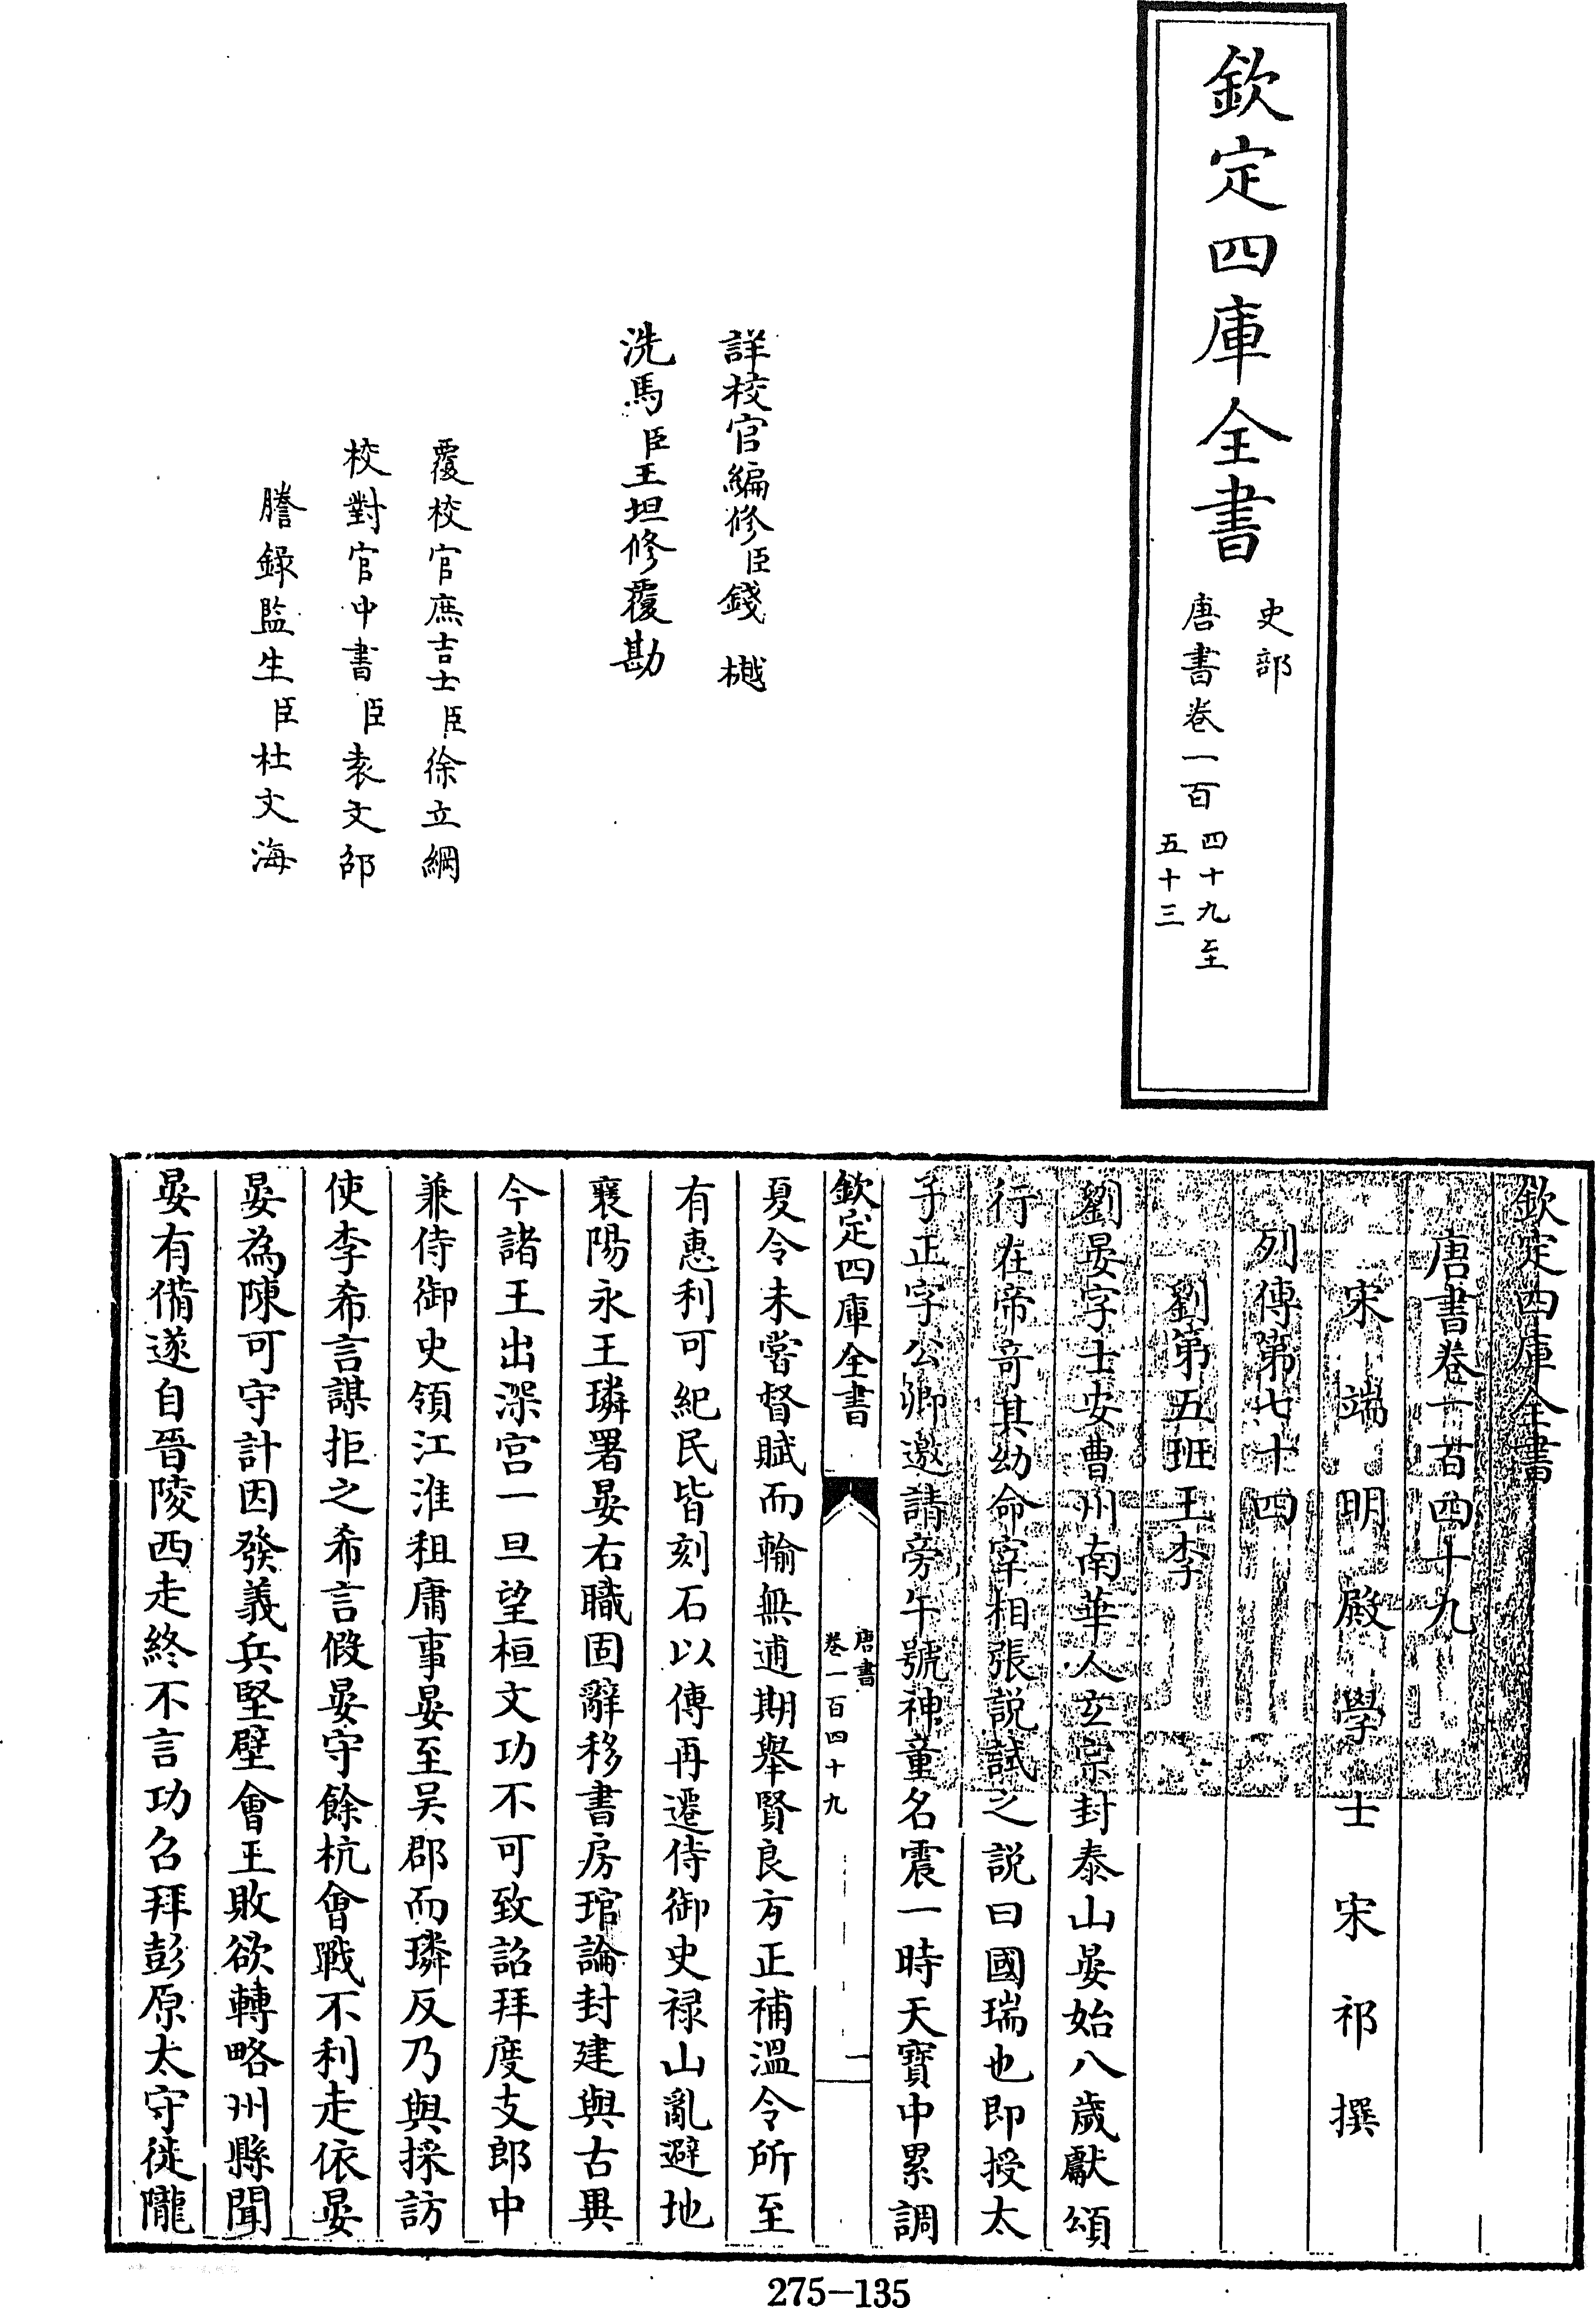 欽定四庫全書
史部
唐書卷一百
四十九至
五十三
詳校官編修臣錢樾
洗馬臣王坦修覆勘
覆校官庶吉士臣徐立綱
校對官中書臣袁文邵
謄錄監生臣杜文海
欽定四庫全書
唐書卷一百四十九
宋端明殿學士宋祁撰
列傳第七十四
劉第五班王李
劉晏字士安曹州南華人玄宗封泰山晏始八歲獻頌
行在帝奇其幼命宰相張説試之説曰國瑞也即授太
子正字公卿邀請旁午號神童名震一時天寶中累調
欽定四庫全書
唐書
卷一百四十九
一
夏令未嘗督賦而輸無逋期舉賢良方正補溫令所至
有惠利可紀民皆刻石以傳再遷侍御史祿山亂避地
襄陽永王璘署晏右職固辭移書房琯論封建與古異
今諸王出深宫一旦望桓文功不可致詔拜度支郎中
兼侍御史領江淮租庸事晏至吴郡而璘反乃與採訪
使李希言謀拒之希言假晏守餘杭會戰不利走依晏
晏為陳可守計因發義兵堅壁會王敗欲轉略州縣聞
晏有備遂自晉陵西走終不言功召拜彭原太守徙隴
275—135